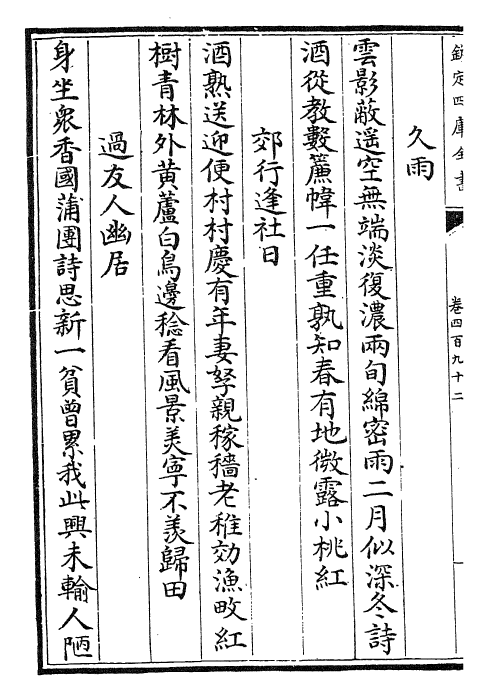 欽定四庫全書
卷四百九十二
久雨
雲影蔽遥空無端淡復濃兩旬綿密雨二月似深冬詩
酒從教數簾幃一任重孰知春有地微露小桃紅
郊行逢社日
酒熟送迎便村村慶有年妻孥親稼穡老稚効漁畋紅
樹青林外黄蘆白鳥邊稔看風景美寧不羡歸田
過友人幽居
身坐衆香國蒲團詩思新一貧曾累我此興未輸人陋